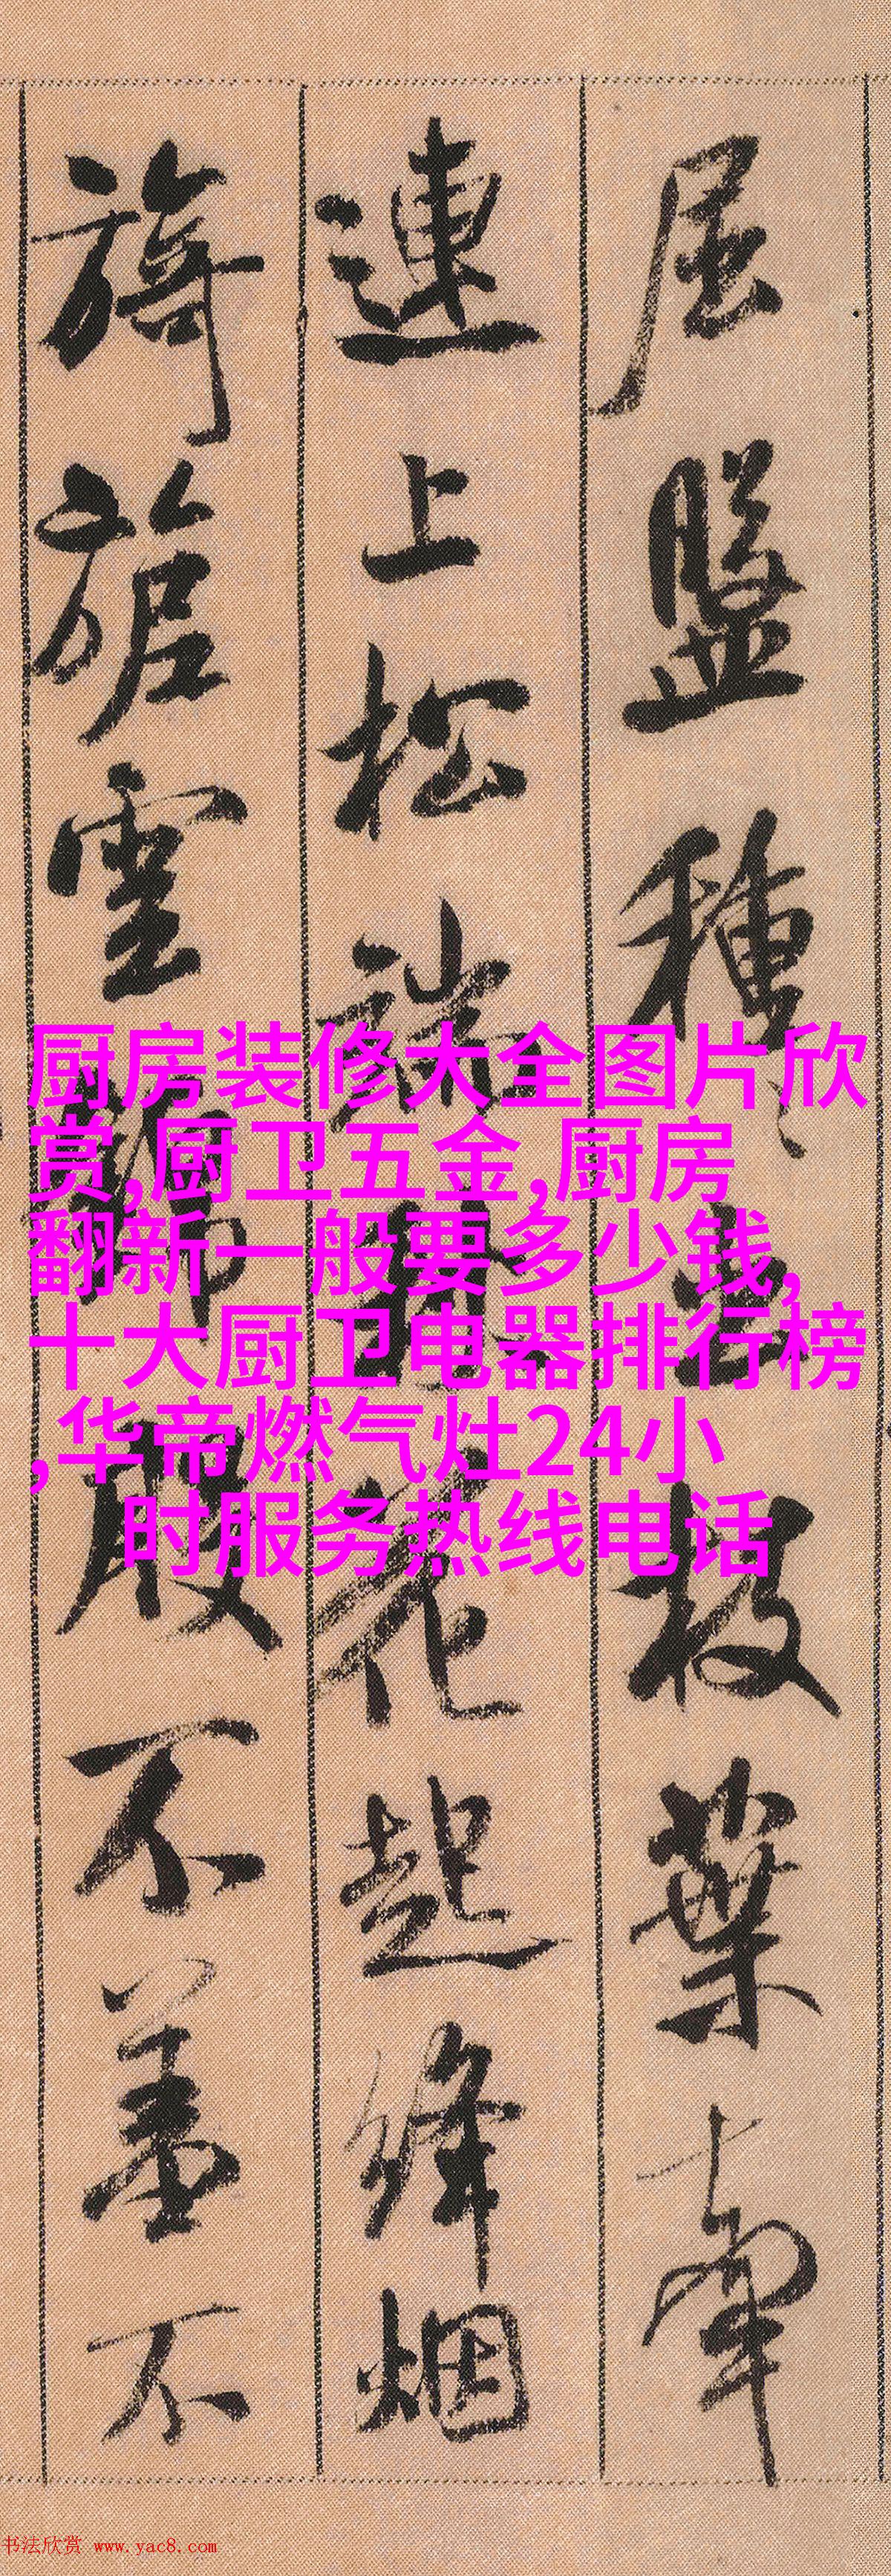 屈盤種種生枝葉牽
連上松端秋花起絳烟
旖旎雲錦殷不羞不
厨房装修大全图片欣
赏,厨卫五金,厨房
翻新一般要多少钱,
十大厨卫电器排行榜
,华帝燃气灶24小
时服务热线电话
书法欣赏 www.yac8.com